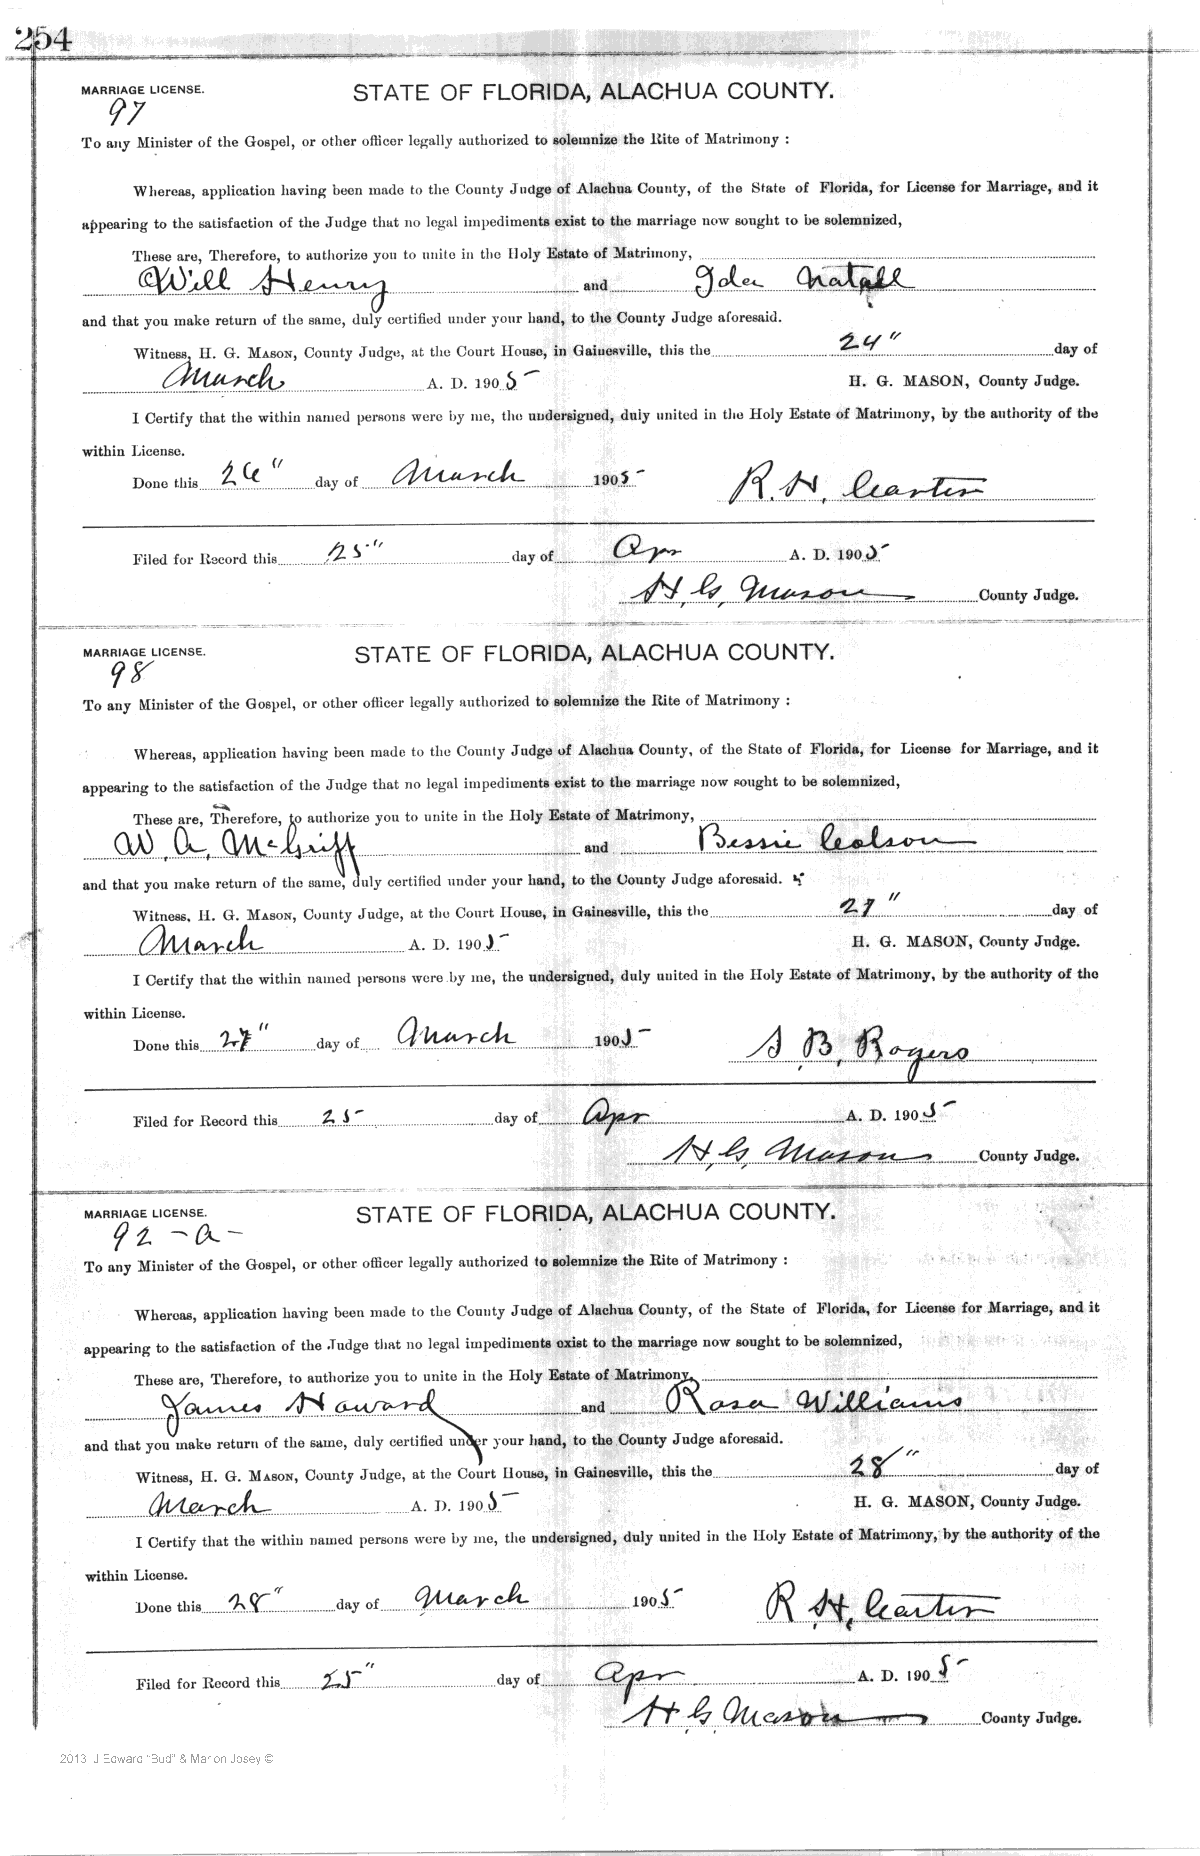 254
MARRIAGE LICENSE.
97
STATE OF FLORIDA, ALACHUA COUNTY.
To any Minister of the Gospel, or other officer legally authorized to solemnize the Rite of Matrimony :
Whereas, application having been made to the County Judge of Alachua County, of the State of Florida, for License for Marriage, and it
appearing to the satisfaction of the Judge that no legal impediments exist to the marriage now sought to be solemnized,
These are, Therefore, to authorize you to unite in the Holy Estate of Matrimony,
Will Henry and Ida Natall
and that you make return of the same, duly certified under your hand, to the County Judge aforesaid.
Witness, H. G. MASON, County Judge, at the Court House, in Gainesville, this the 24" day of
March A. D. 1905 H. G. MASON, County Judge.
I Certify that the within named persons were by me, the undersigned, duly united in the Holy Estate of Matrimony, by the authority of the
within License.
Done this 26" day of March 1905 R. H. Carter
Filed for Record this 25" day of Apr A. D. 1905
H. G. Mason County Judge.
MARRIAGE LICENSE.
98
STATE OF FLORIDA, ALACHUA COUNTY.
To any Minister of the Gospel, or other officer legally authorized to solemnize the Rite of Matrimony :
Whereas, application having been made to the County Judge of Alachua County, of the State of Florida, for License for Marriage, and it
appearing to the satisfaction of the Judge that no legal impediments exist to the marriage now sought to be solemnized,
These are, Therefore, to authorize you to unite in the Holy Estate of Matrimony,
W. A. McGriff and Bessie Colson
and that you make return of the same, duly certified under your hand, to the County Judge aforesaid.
Witness, H. G. MASON, County Judge, at the Court House, in Gainesville, this the 27" day of
March A. D. 1905 H. G. MASON, County Judge.
I Certify that the within named persons were by me, the undersigned, duly united in the Holy Estate of Matrimony, by the authority of the
within License.
Done this 27" day of March 1905 S. B. Rogers
Filed for Record this 25 day of Apr A. D. 1905
H. G. Mason County Judge.
MARRIAGE LICENSE.
92 -a-
STATE OF FLORIDA, ALACHUA COUNTY.
To any Minister of the Gospel, or other officer legally authorized to solemnize the Rite of Matrimony :
Whereas, application having been made to the County Judge of Alachua County, of the State of Florida, for License for Marriage, and it
appearing to the satisfaction of the Judge that no legal impediments exist to the marriage now sought to be solemnized,
These are, Therefore, to authorize you to unite in the Holy Estate of Matrimony,
James Howard and Rosa Williams
and that you make return of the same, duly certified under your hand, to the County Judge aforesaid.
Witness, H. G. MASON, County Judge, at the Court House, in Gainesville, this the 28" day of
March A. D. 1905 H. G. MASON, County Judge.
I Certify that the within named persons were by me, the undersigned, duly united in the Holy Estate of Matrimony, by the authority of the
within License.
Done this 28" day of March 1905 R. H. Carter
Filed for Record this 25" day of Apr A. D. 1905
H. G. Mason County Judge.
2013 J Edward "Bud" & Marion Josey ©